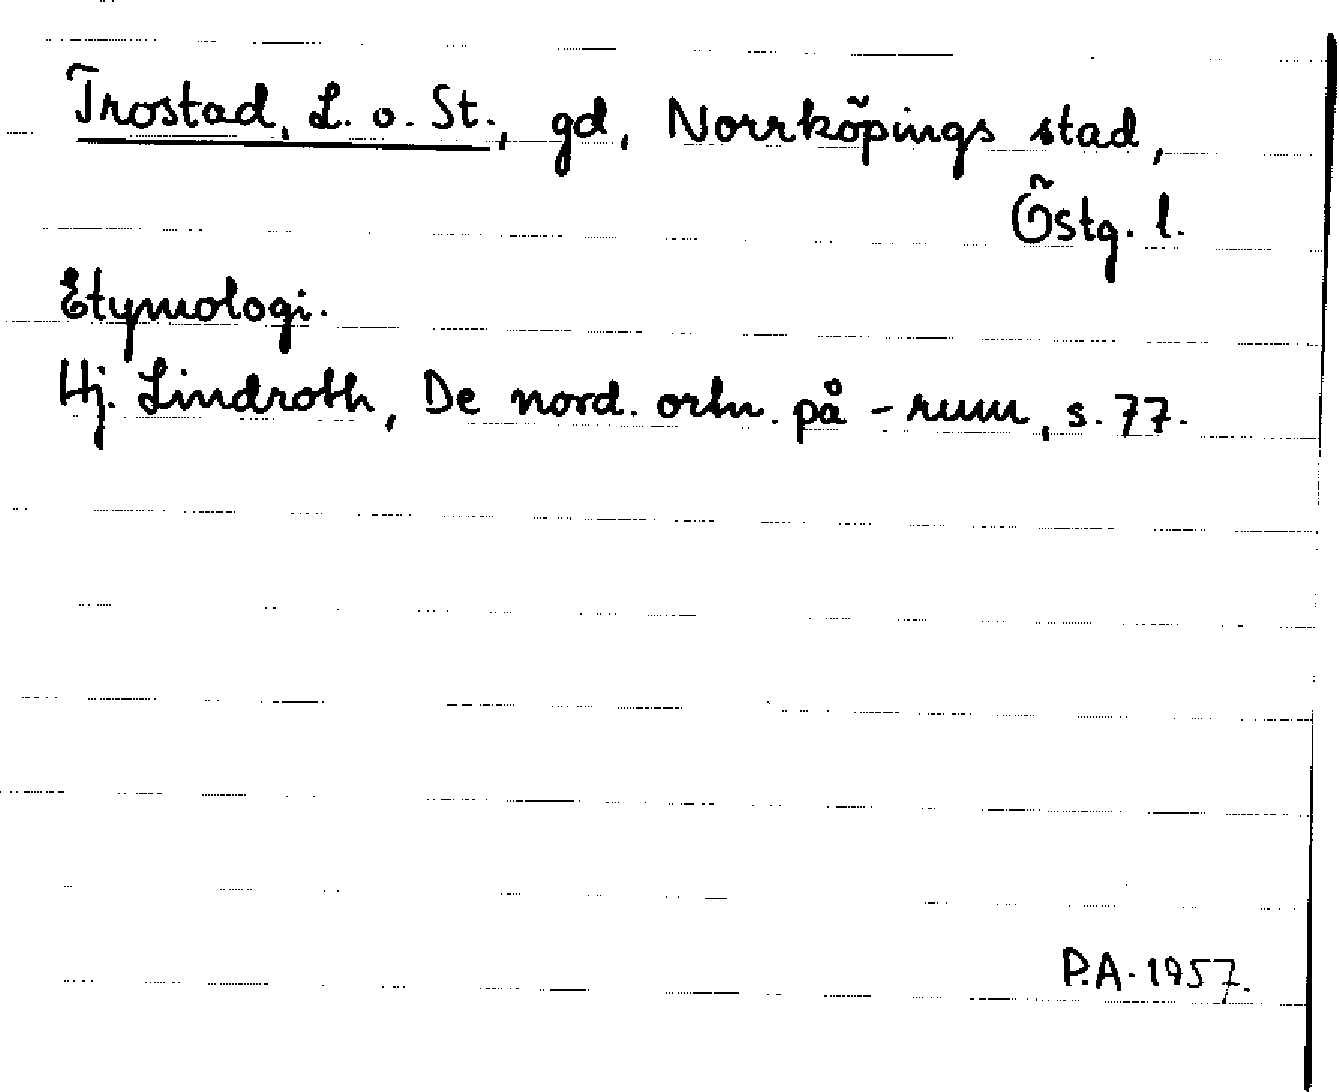 Trostad, L. o. St., gd, Norrköpings stad,
Östg. l.
Etymologi.
Hj. Lindroth, De nord. ortn. på -rum, s. 77.
P.A. 1957.